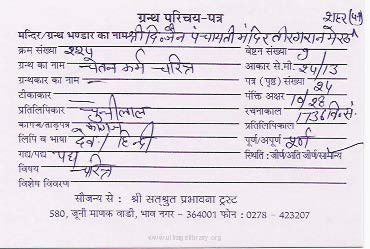 ग्रन्थ परिचय-पत्र
मन्दिर/ग्रन्थ भण्डार का नाम श्री दि० जैन पंचायती मंदिर तीरगरान मेरठ शहर
क्रम संख्या २२५ वेष्टन संख्या 9
ग्रन्थ का नाम चेतन कर्म चरित्र आकार से.मी. २५/13
ग्रन्थकार का नाम पत्र (पृष्ठ) संख्या २५
टीकाकार पंक्ति अक्षर
प्रतिलिपिकार चुन्नीलाल रचनाकाल 1736 वि.सं.
कागज/ताड़पत्र कागज प्रतिलिपिकाल
लिपि व भाषा देव। हिन्दी पूर्ण/अपूर्ण पूर्ण
गद्य/पद्य पद्य स्थिति : जीर्ण/अति जीर्ण/सामान्य
विषय चरित्र
विशेष विवरण
सौजन्य से : श्री सतश्रुत प्रभावना ट्रस्ट
580, जूनी माणक वाडी, भाव नगर – 364001 फोन : 0278 – 423207